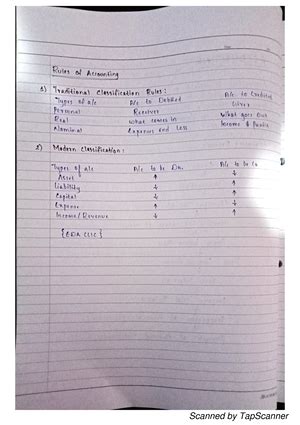 Rules of Accounting
1) Traditional Classification Rules:
Types of a/c A/c to Debited A/c to Credited
Personal Receiver Giver
Real What comes in What goes Out
Nominal Expenses and Loss Income & Profits
2) Modern Classification:
Types of a/c A/c to be Dr. A/c to be Cr.
Asset ↑ ↓
Liability ↓ ↑
Capital ↓ ↑
Expense ↑ ↓
Income/Revenue ↓ ↑
Scanned by TapScanner